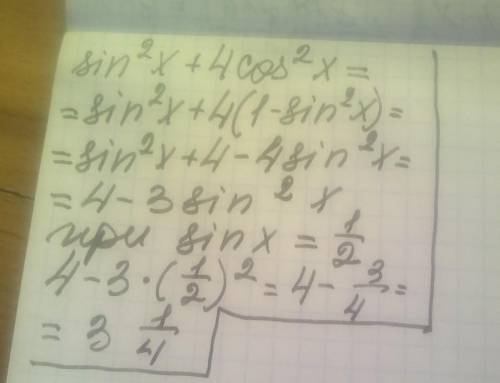 sin²x + 4cos²x =
= sin²x + 4(1 - sin²x) =
= sin²x + 4 - 4sin²x =
= 4 - 3 sin² x
при sin x = 1/2
4 - 3 · (1/2)² = 4 - 3/4 =
= 3 1/4